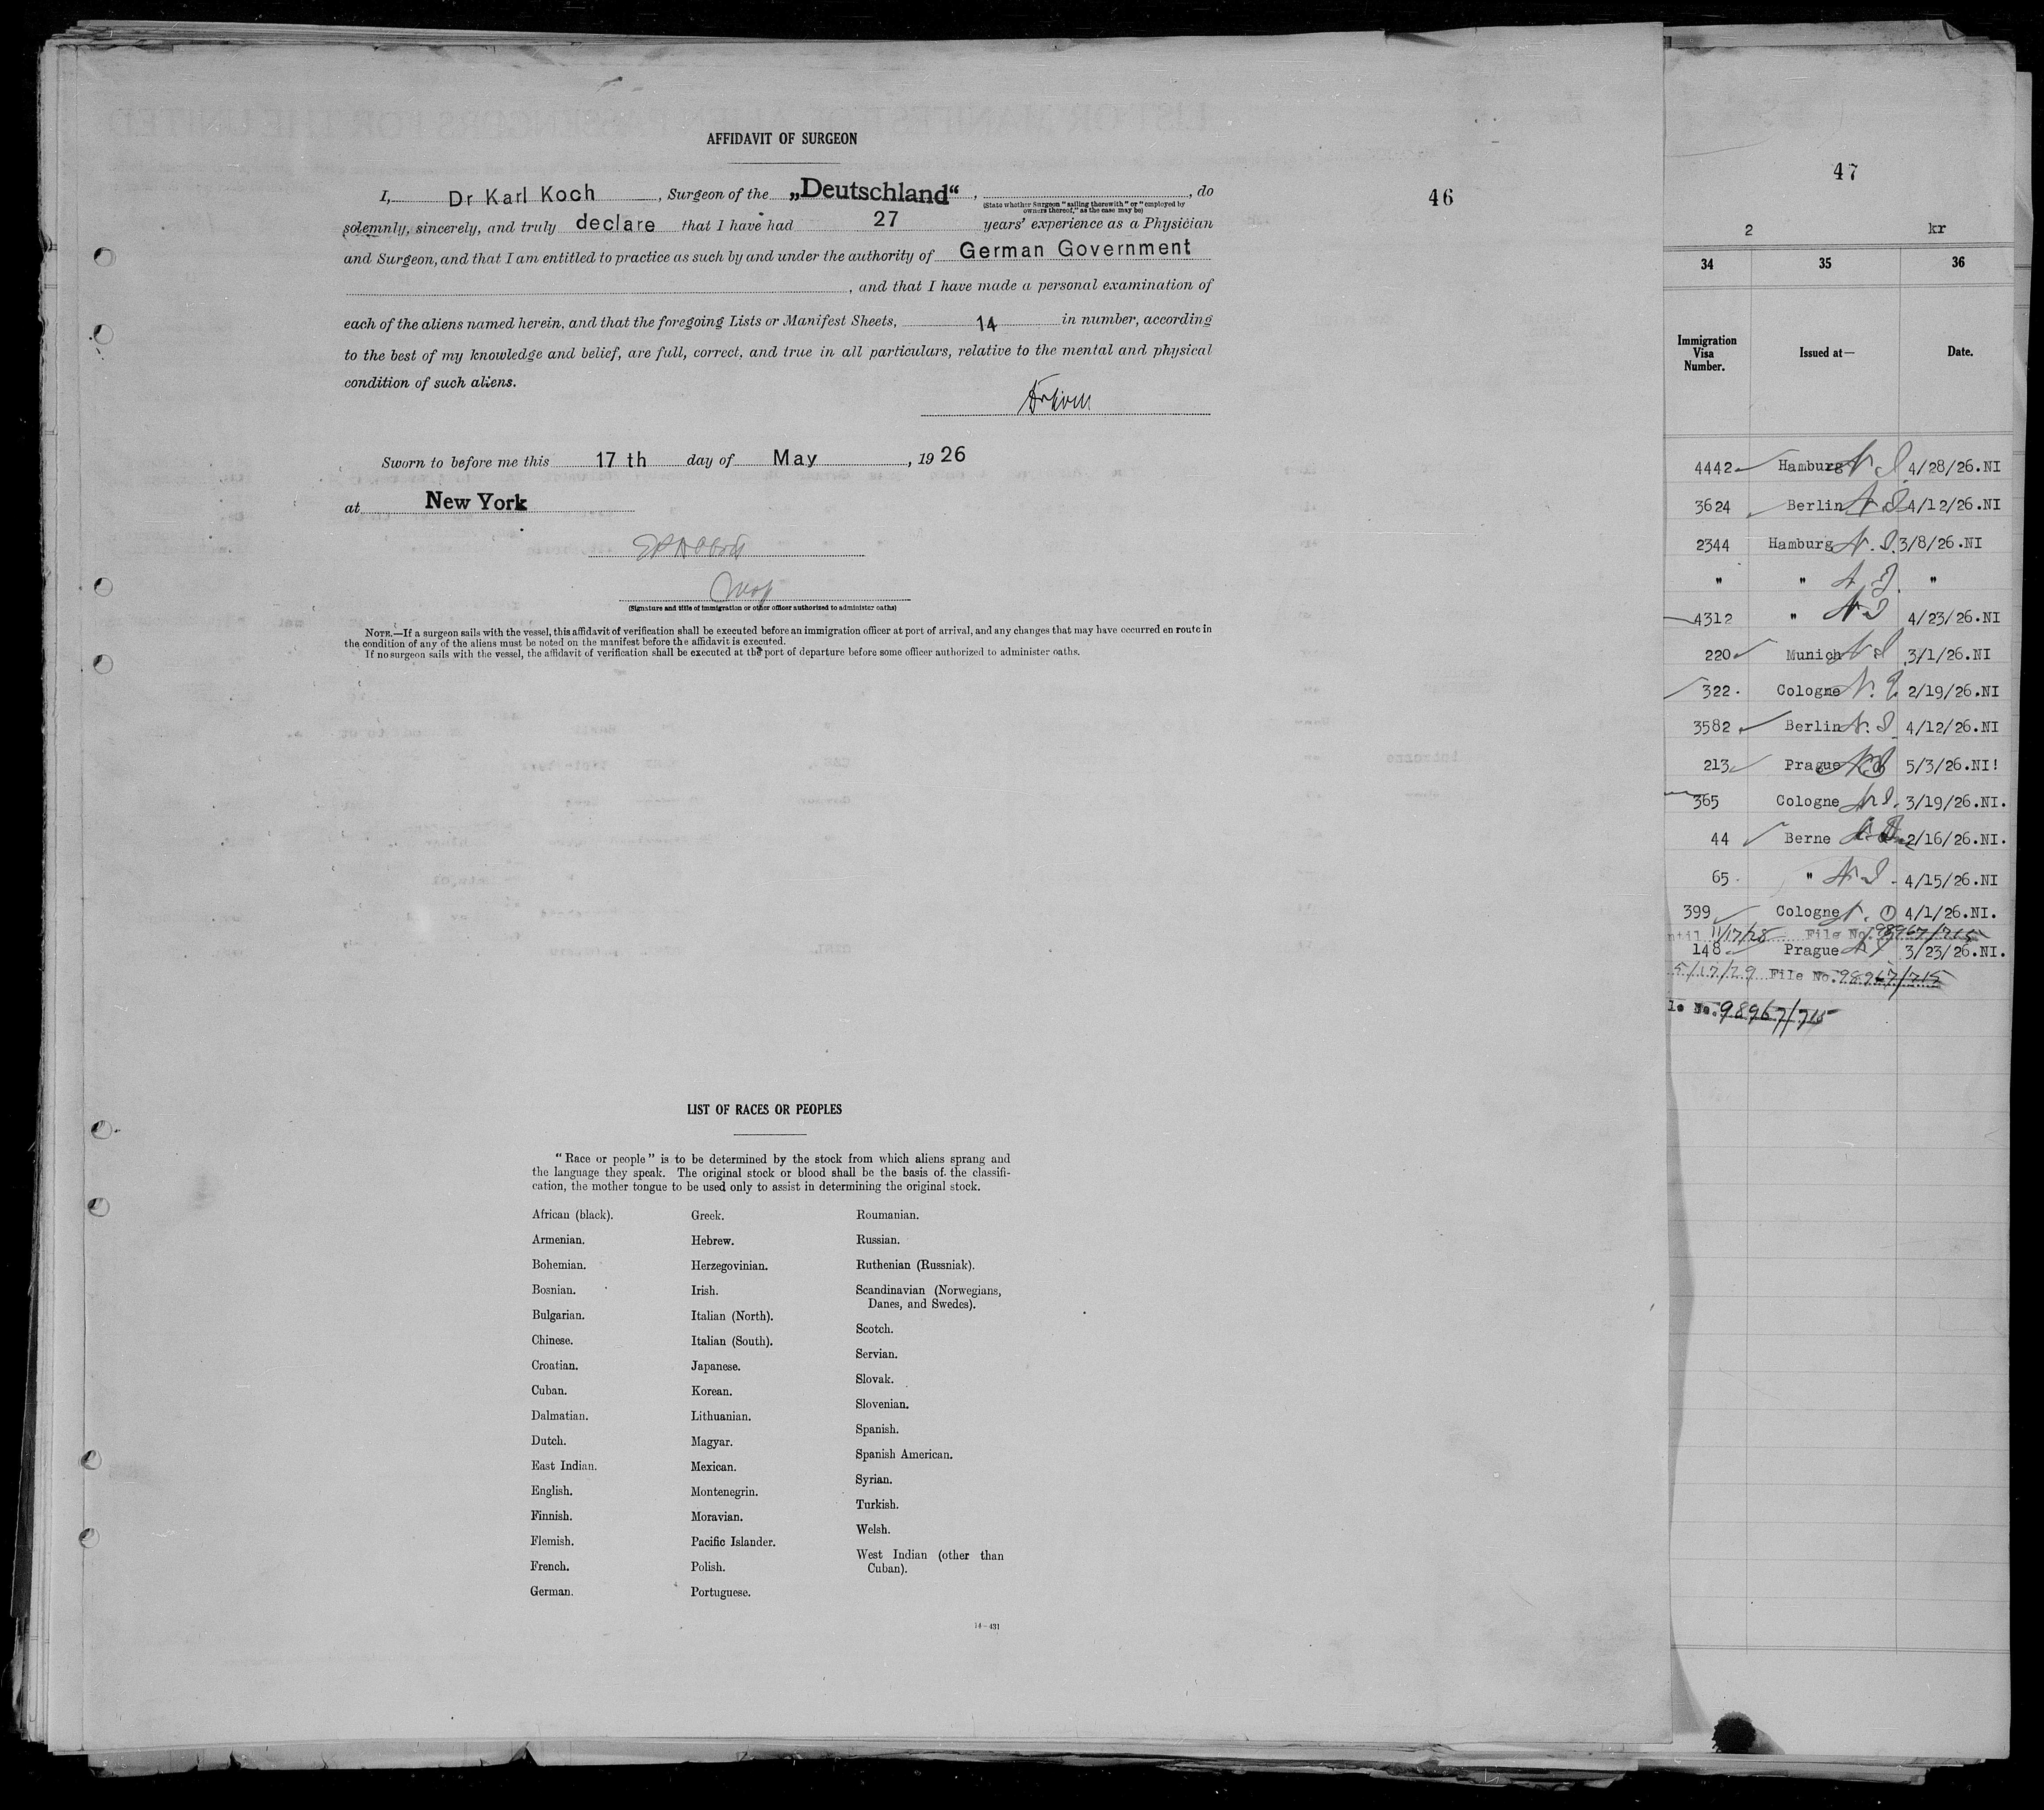 AFFIDAVIT OF SURGEON
I, Dr Karl Koch, Surgeon of the „Deutschland“, , do
(State whether Surgeon "sailing therewith" or "employed by
owners thereof," as the case may be)
solemnly, sincerely, and truly declare that I have had 27 years' experience as a Physician
and Surgeon, and that I am entitled to practice as such by and under the authority of German Government
, and that I have made a personal examination of
each of the aliens named herein, and that the foregoing Lists or Manifest Sheets, 14 in number, according
to the best of my knowledge and belief, are full, correct, and true in all particulars, relative to the mental and physical
condition of such aliens.
Sworn to before me this 17 th day of May, 19 26
at New York
(Signature and title of immigration or other officer authorized to administer oaths)
NOTE.—If a surgeon sails with the vessel, this affidavit of verification shall be executed before an immigration officer at port of arrival, and any changes that may have occurred en route in
the condition of any of the aliens must be noted on the manifest before the affidavit is executed.
If no surgeon sails with the vessel, the affidavit of verification shall be executed at the port of departure before some officer authorized to administer oaths.
46
LIST OF RACES OR PEOPLES
"Race or people" is to be determined by the stock from which aliens sprang and
the language they speak. The original stock or blood shall be the basis of the classifi-
cation, the mother tongue to be used only to assist in determining the original stock.
African (black).
Armenian.
Bohemian.
Bosnian.
Bulgarian.
Chinese.
Croatian.
Cuban.
Dalmatian.
Dutch.
East Indian.
English.
Finnish.
Flemish.
French.
German.
Greek.
Hebrew.
Herzegovinian.
Irish.
Italian (North).
Italian (South).
Japanese.
Korean.
Lithuanian.
Magyar.
Mexican.
Montenegrin.
Moravian.
Pacific Islander.
Polish.
Portuguese.
Roumanian.
Russian.
Ruthenian (Russniak).
Scandinavian (Norwegians,
Danes, and Swedes).
Scotch.
Servian.
Slovak.
Slovenian.
Spanish.
Spanish American.
Syrian.
Turkish.
Welsh.
West Indian (other than
Cuban).
14—431
47
2 kr
34 35 36
Immigration
Visa
Number.
Issued at—
Date.
4442 Hamburg 4/28/26.NI
3624 Berlin 4/12/26.NI
2344 Hamburg 3/8/26.NI
" " "
4312 " 4/23/26.NI
220 Munich 3/1/26.NI
322 Cologne 2/19/26.NI
3582 Berlin 4/12/26.NI
213 Prague 5/3/26.NI!
365 Cologne 3/19/26.NI.
44 Berne 2/16/26.NI.
65 " 4/15/26.NI
399 Cologne 4/1/26.NI.
ntil 11/17/28 File No. 98967/715
148 Prague 3/23/26.NI.
5/17/29 File No. 98967/715
le No. 98967/715